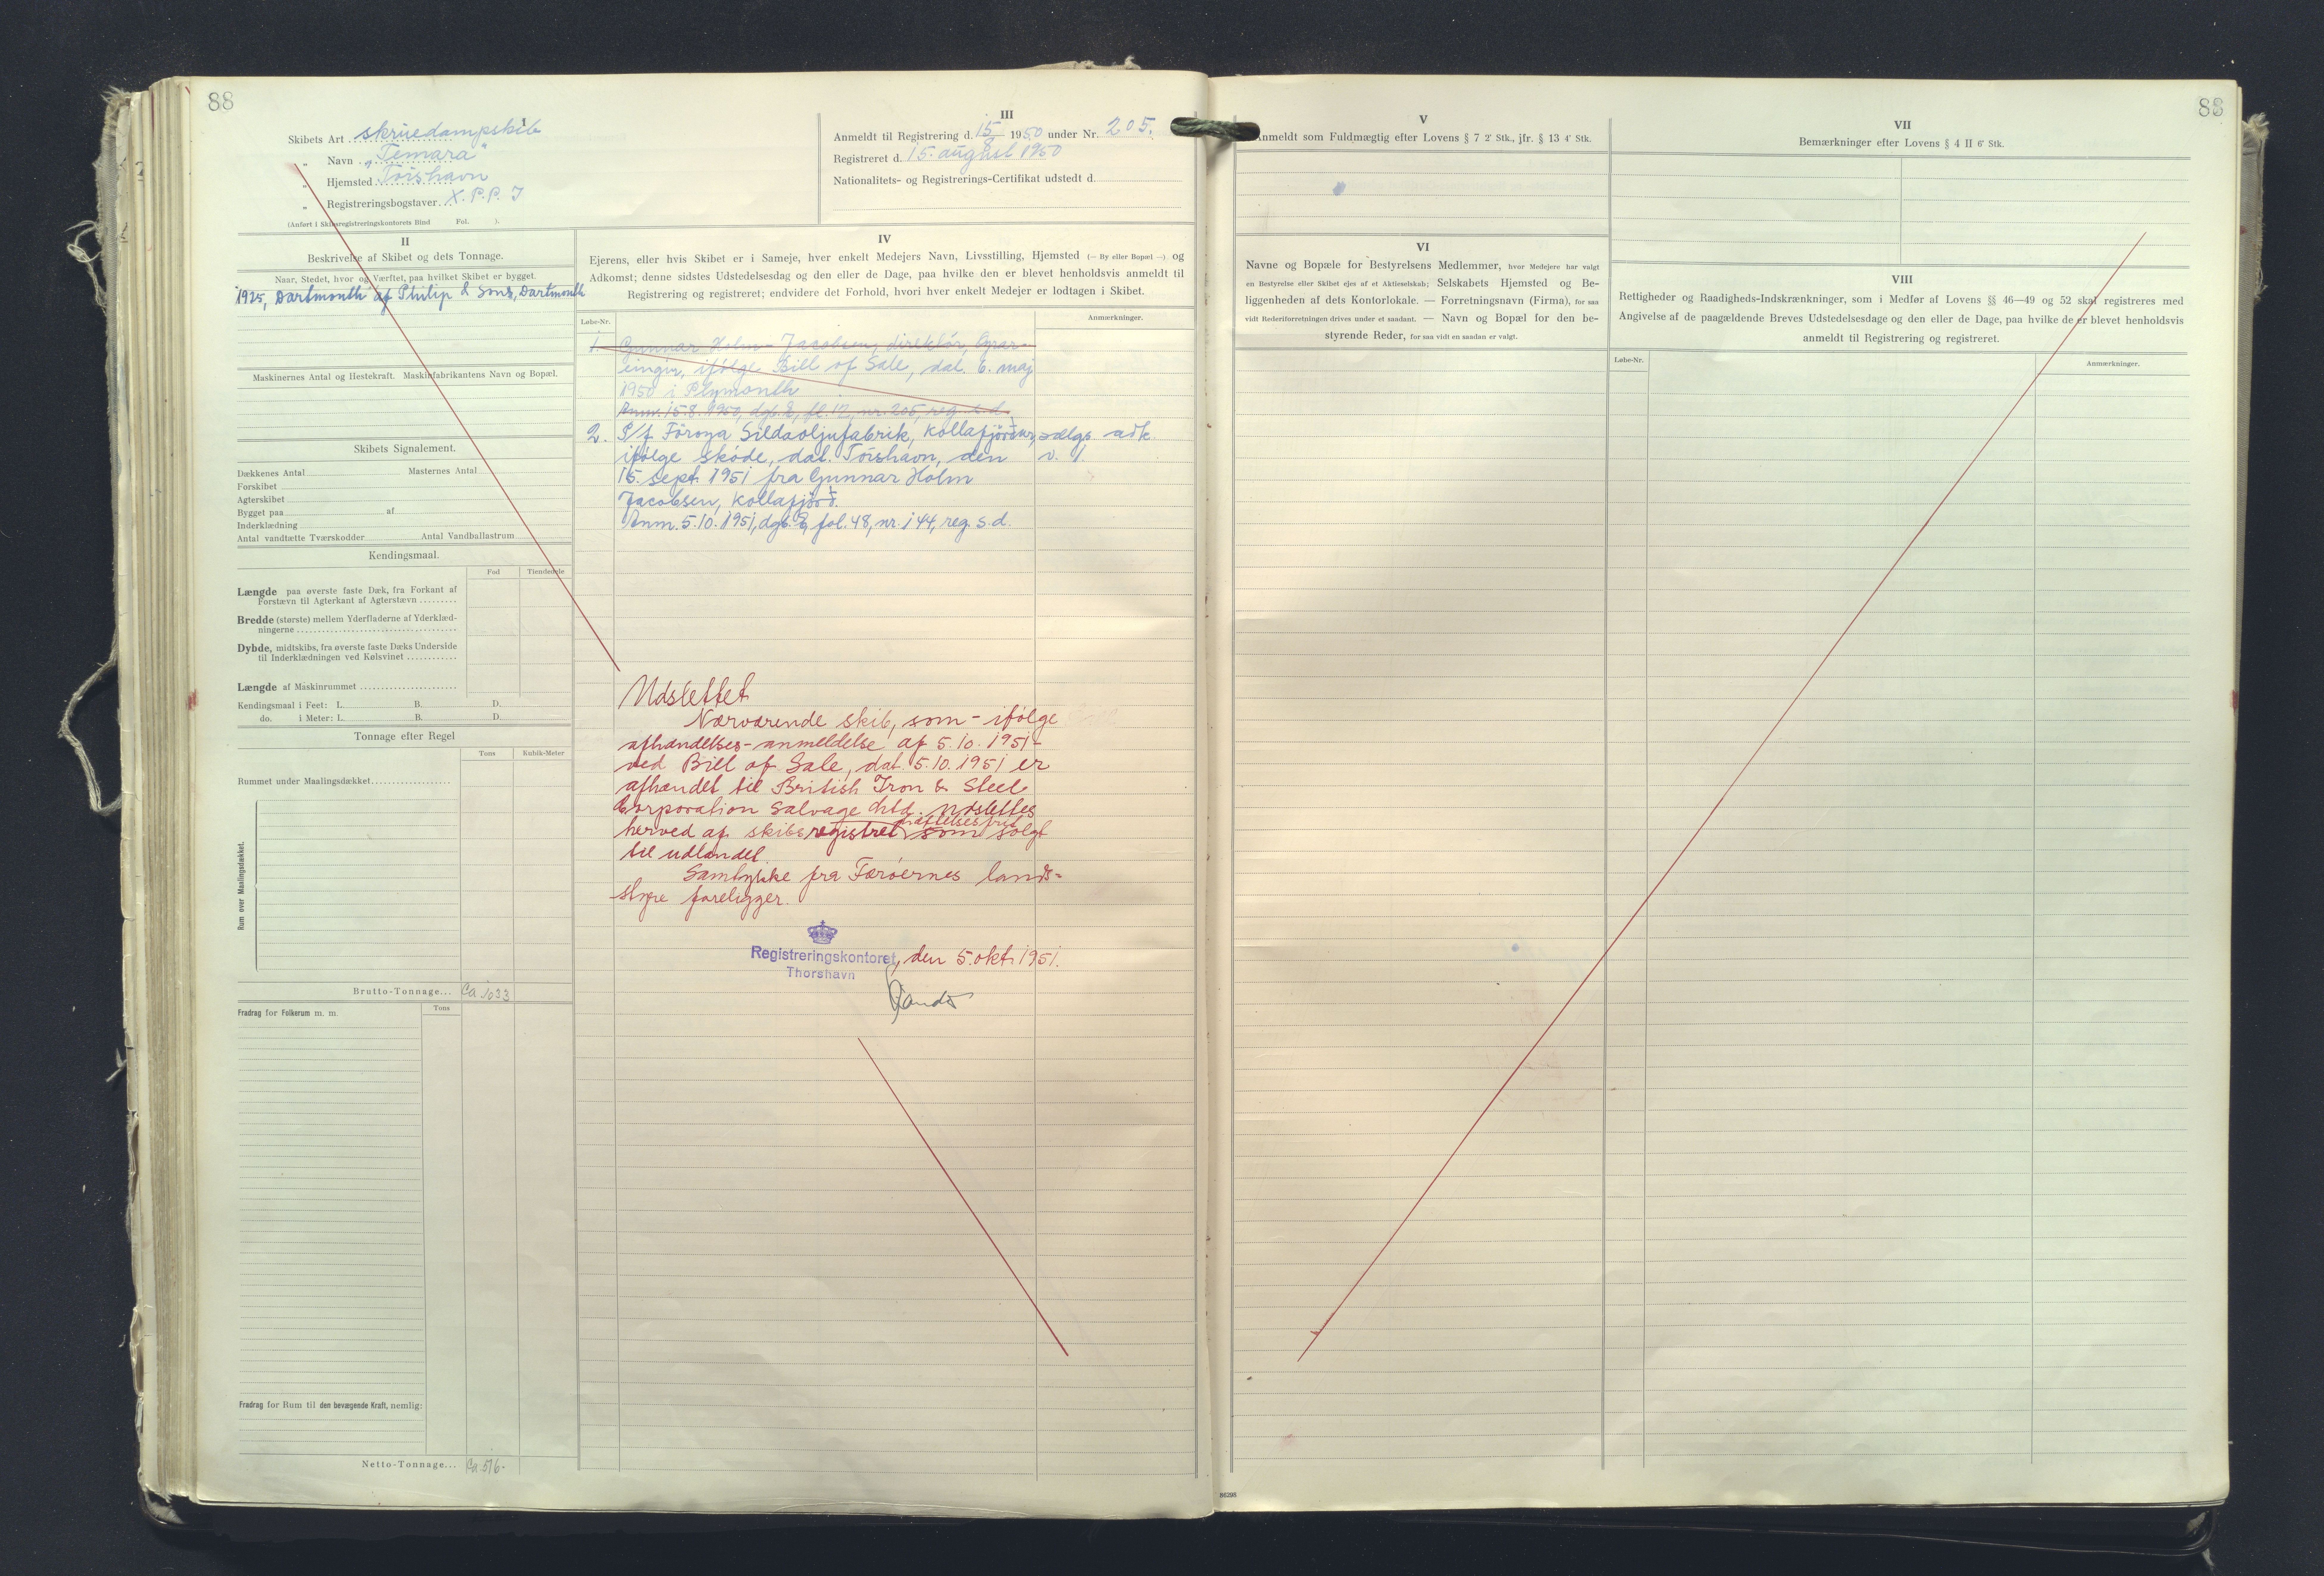 88
I
Skibets Art skruedampskib
„ Navn „Temara"
„ Hjemsted Tórshavn
„ Registreringsbogstaver X.P.P.J
(Anført i Skibsregistreringskontorets Bind Fol. ).
III
Anmeldt til Registrering d. 15/8 1950 under Nr. 205.
Registreret d. 15. august 1950
Nationalitets- og Registrerings-Certifikat udstedt d.
II
Beskrivelse af Skibet og dets Tonnage.
Naar, Stedet, hvor og Værftet, paa hvilket Skibet er bygget.
1925, Dartmouth af Philip & Sons, Dartmouth
Maskinernes Antal og Hestekraft. Maskinfabrikantens Navn og Bopæl.
Skibets Signalement.
Dækkenes Antal Masternes Antal
Forskibet
Agterskibet
Bygget paa af
Inderklædning
Antal vandtætte Tværskodder Antal Vandballastrum
Kendingsmaal.
Fod Tiendedele
Længde paa øverste faste Dæk, fra Forkant af
Forstævn til Agterkant af Agterstævn
Bredde (største) mellem Yderfladerne af Yderklæd-
ningerne
Dybde, midtskibs, fra øverste faste Dæks Underside
til Inderklædningen ved Kølsvinet
Længde af Maskinrummet
Kendingsmaal i Feet: L. B. D.
do. i Meter: L. B. D.
Tonnage efter Regel
Tons Kubik-Meter
Rummet under Maalingsdækket
Rum over Maalingsdækket.
Brutto-Tonnage... Ca 1033
Fradrag for Folkerum m. m.
Tons
Fradrag for Rum til den bevægende Kraft, nemlig:
Netto-Tonnage... Ca. 516.
IV
Ejerens, eller hvis Skibet er i Sameje, hver enkelt Medejers Navn, Livsstilling, Hjemsted (— By eller Bopæl —) og
Adkomst; denne sidstes Udstedelsesdag og den eller de Dage, paa hvilke den er blevet henholdsvis anmeldt til
Registrering og registreret; endvidere det Forhold, hvori hver enkelt Medejer er lodtagen i Skibet.
Løbe-Nr.
Anmærkninger.
1. Gunnar Holm-Jacobsen, direktør,
ifølge Bill of Sale, dat. 6. maj
1950 i Plymouth
Anm. 15.8.1950, dgb. E, fl. 12, nr. 205, reg. s.d.
2. P/f Föroya Sildaoljufabrik, Kollafjörður, sælgs adk.
ifølge skøde, dat. Tórshavn, den v. 1
15. sept. 1951 fra Gunnar Holm
Jacobsen, Kollafjörð.
Anm. 5.10.1951, dgb. E, fol. 48, nr. 144, reg. s.d.
Udslettet
Nærværende skib, som - ifølge
afhændelses-anmeldelse af 5.10.1951 -
ved Bill of Sale, dat. 5.10.1951 er
afhændet til British Iron & Steel
Corporation Salvage Ltd. udslettes
herved af skibsregistret som solgt
til udlandet.
Samtykke fra Færøernes lands-
styre foreligger.
Registreringskontoret, den 5. okt. 1951.
Thorshavn
88
V
Anmeldt som Fuldmægtig efter Lovens § 7 2' Stk., jfr. § 13 4' Stk.
VI
Navne og Bopæle for Bestyrelsens Medlemmer, hvor Medejere har valgt
en Bestyrelse eller Skibet ejes af et Aktieselskab; Selskabets Hjemsted og Be-
liggenheden af dets Kontorlokale. — Forretningsnavn (Firma), for saa
vidt Rederiforretningen drives under et saadant. — Navn og Bopæl for den be-
styrende Reder, for saa vidt en saadan er valgt.
VII
Bemærkninger efter Lovens § 4 II 6' Stk.
VIII
Rettigheder og Raadigheds-Indskrænkninger, som i Medfør af Lovens §§ 46—49 og 52 skal registreres med
Angivelse af de paagældende Breves Udstedelsesdage og den eller de Dage, paa hvilke de er blevet henholdsvis
anmeldt til Registrering og registreret.
Løbe-Nr.
Anmærkninger.
86298